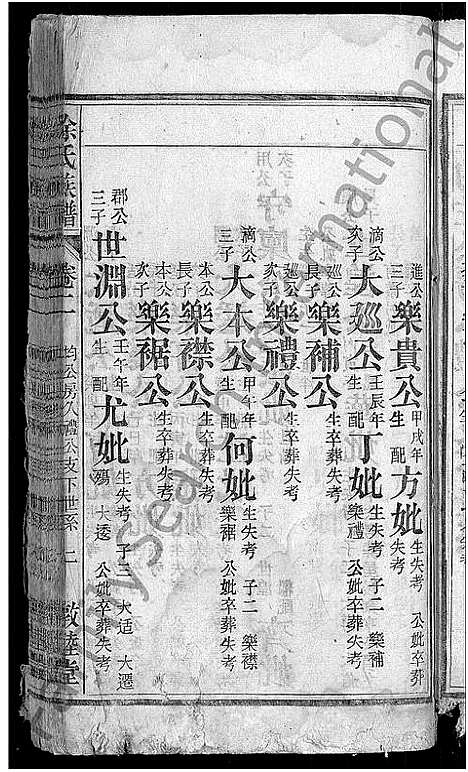 進公三子 樂貴公 甲戌年生 配 方妣 生失考 公妣卒葬失考
滴公次子 大廵公 壬辰年生 配 丁妣 生失考 子二 樂補 樂禮 公妣卒葬失考
廵公長子 樂補公 生卒葬失考
廵公次子 樂禮公 生卒葬失考
滴公三子 大本公 甲午年生 配 何妣 生失考 子二 樂襟 樂裾 公妣卒葬失考
本公長子 樂襟公 生卒葬失考
本公次子 樂裾公 生卒葬失考
郡公三子 世淵公 壬午年生 配 尤妣 生失考 子三 大适 大遷 殤 大透 公妣卒葬失考
徐氏族譜 卷二 均公房久禮公支下世系 二 敦睦堂